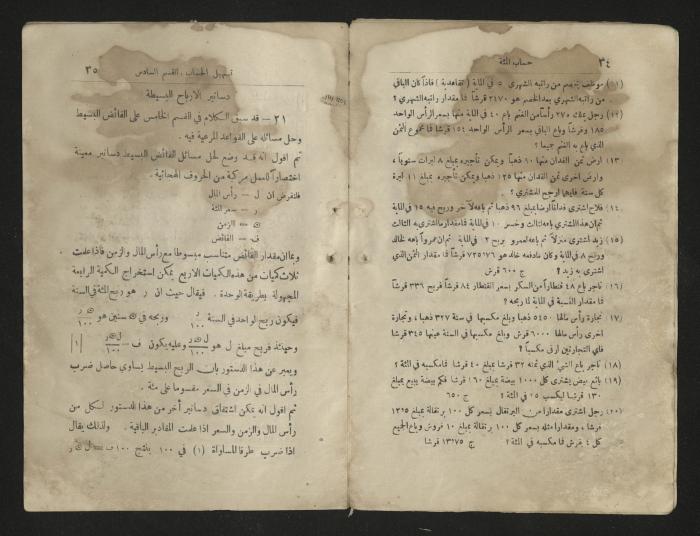 ٣٤
حساب المئة
(١١) موظف يخصم من راتبه الشهري ٥ في الماية (تقاعدية) فاذا كان الباقي
من راتبه الشهري بعد الخصم هو ٢١٧٠ قرشا فما مقدار راتبه الشهري ؟
(١٢) رجل يملك ٢٧٠ رأسا من الغنم باع ٤٠ في الماية منها بسعر الرأس الواحد
١٨٥ قرشا وباع الباقي بسعر الرأس الواحد ١٥٤ قرشا فما مجموع الثمن
الذي باع به الغنم جميعا ؟
(١٣) ارض ثمن الفدان منها ١٠ ذهبا ويمكن تأجيره بمبلغ ٨ ليرات سنويا ،
وارض اخرى ثمن الفدان منها ١٢٥ ذهبا ويمكن تأجيره بمبلغ ١١ ليرة
كل سنة فايهما اربح للمشتري ؟
(١٤) فلاح اشترى فدانا ارضا بمبلغ ٩٦ ذهبا ثم باعه لآخر وربح فيه ١٥ في الماية
ثم ان هذا المشتري باعه لثالث وخسر ١٠ في الماية فما مقدار ما اشتري به الثالث
(١٥) زيد اشترى منزلا ثم باعه لعمرو بربح ٢ في الماية ثم ان عمرواً باعه لخالد
وربح ٨ في الماية وكان ما دفعه خالد هو ٧٢٥٧٦ قرشا فما مقدار الثمن الذي
اشترى به زيد ؟ ج ٦٠٠ قرش
(١٦) تاجر باع ٤٨ قنطارا من السكر بسعر القنطار ٨٤ قرشا فربح ٣٣٩ قرشا
فما مقدار النسبة في الماية لما ربحه ؟
(١٧) تجارة رأس مالها ٥٤٥٠ ذهبا وبلغ مكسبها في سنة ٣٢٧ ذهبا ، وتجارة
اخرى رأس مالها ٦٠٠٠ قرش وبلغ مكسبها في السنة عينها ٣٤٥ قرشا
فاي التجارتين ارقى مكسبا ؟
(١٨) تاجر باع الشيء الذي ثمنه ٣٢ قرشا بمبلغ ٤٠ قرشا فما مكسبه في المئة ؟
(١٩) بائع بيض يشتري كل ١٠٠٠ بيضة بمبلغ ١٦٠ قرشا فكم بيضة يبيع بمبلغ
١٣٠ قرشا ليكسب ٢٥ في المئة ؟ ج ٦٥٠
(٢٠) رجل اشترى مقدارا من البرتقال بسعر كل ١٠٠ برتقالة بمبلغ ١٣٢٥
قرشا ، ومقدارا مثله بسعر كل ١٠٠ برتقالة بمبلغ ١٠ قروش وباع الجميع
كل ٤ بقرش فما مكسبه في المئة ؟ ج ١٣١٧٥ قرشا
٣٥
تسهيل الحساب ، القسم السادس
دساتير الارباح البسيطة
٢١ – قد سبق الكلام في القسم الخامس على الفائض البسيط
وحل مسائله على القواعد المرعية فيه .
ثم اقول انه قد وضع لحل مسائل الفائض البسيط دساتير معينة
اختصارا للعمل مركبة من الحروف الهجائية .
فلنفرض ان ل – رأس المال
ر – سعر المئة
ﻫ – الزمن
ف – الفائض
وبما ان مقدار الفائض متناسب مبسوطا مع رأس المال والزمن فاذا علمت
ثلاث كميات من هذه الكميات الاربع يمكن استخراج الكمية الرابعة
المجهولة بطريقة الوحدة . فيقال حيث ان ر هو ربح المئة في السنة
فيكون ربح لواحد في السنة ر/١٠٠ وربحه في ﻫ سنين هو ﻫ ر/١٠٠
وحينئذ فربح مبلغ ل هو ل ﻫ ر/١٠٠ وعليه يكون ف = ل ﻫ ر/١٠٠ |١|
ويعبر عن هذا الدستور بان الربح البسيط يساوي حاصل ضرب
رأس المال في الزمن في السعر مقسوما على مئة .
ثم اقول انه يمكن اشتقاق دساتير أخر من هذا الدستور لكل من
رأس المال والزمن والسعر اذا علمت المقادير الباقية . ولذلك يقال
اذا ضرب طرفا المساواة (١) في ١٠٠ ينتج ١٠٠ ف = ل ﻫ ر